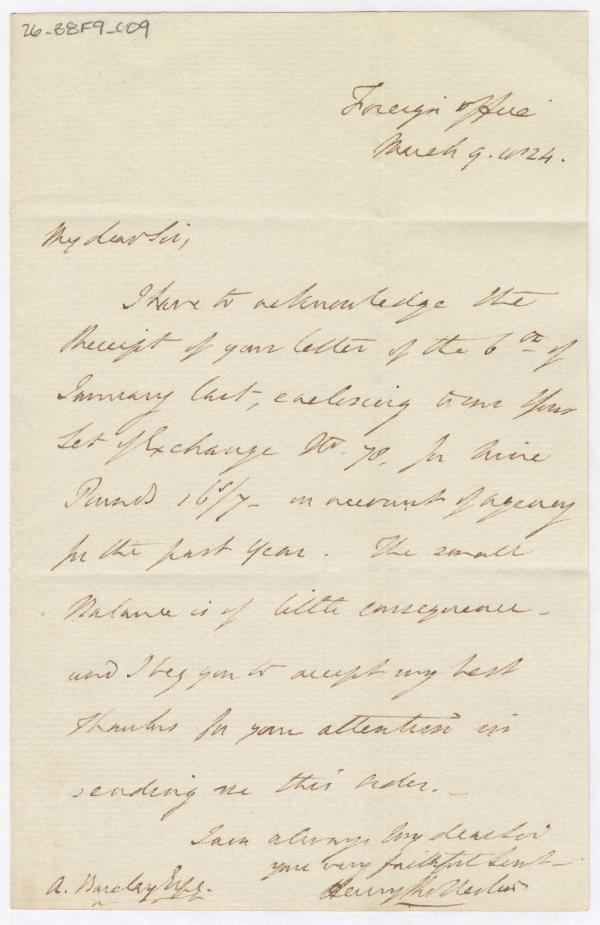 26-B8F9-C09
Foreign Office
March 9. 1824.
My dear Sir,
I have to acknowledge the
Receipt of your letter of the 6th of
January last, enclosing to me your
Set of Exchange No. 78. for Nine
Pounds 16s/7 - on account of agency
for the past Year. The small
Balance is of little consequence -
and I beg you to accept my best
thanks for your attention in
sending me this order. -
I am always My dear Sir
your very faithful Servt -
A. Barclay Esqe.
Henry